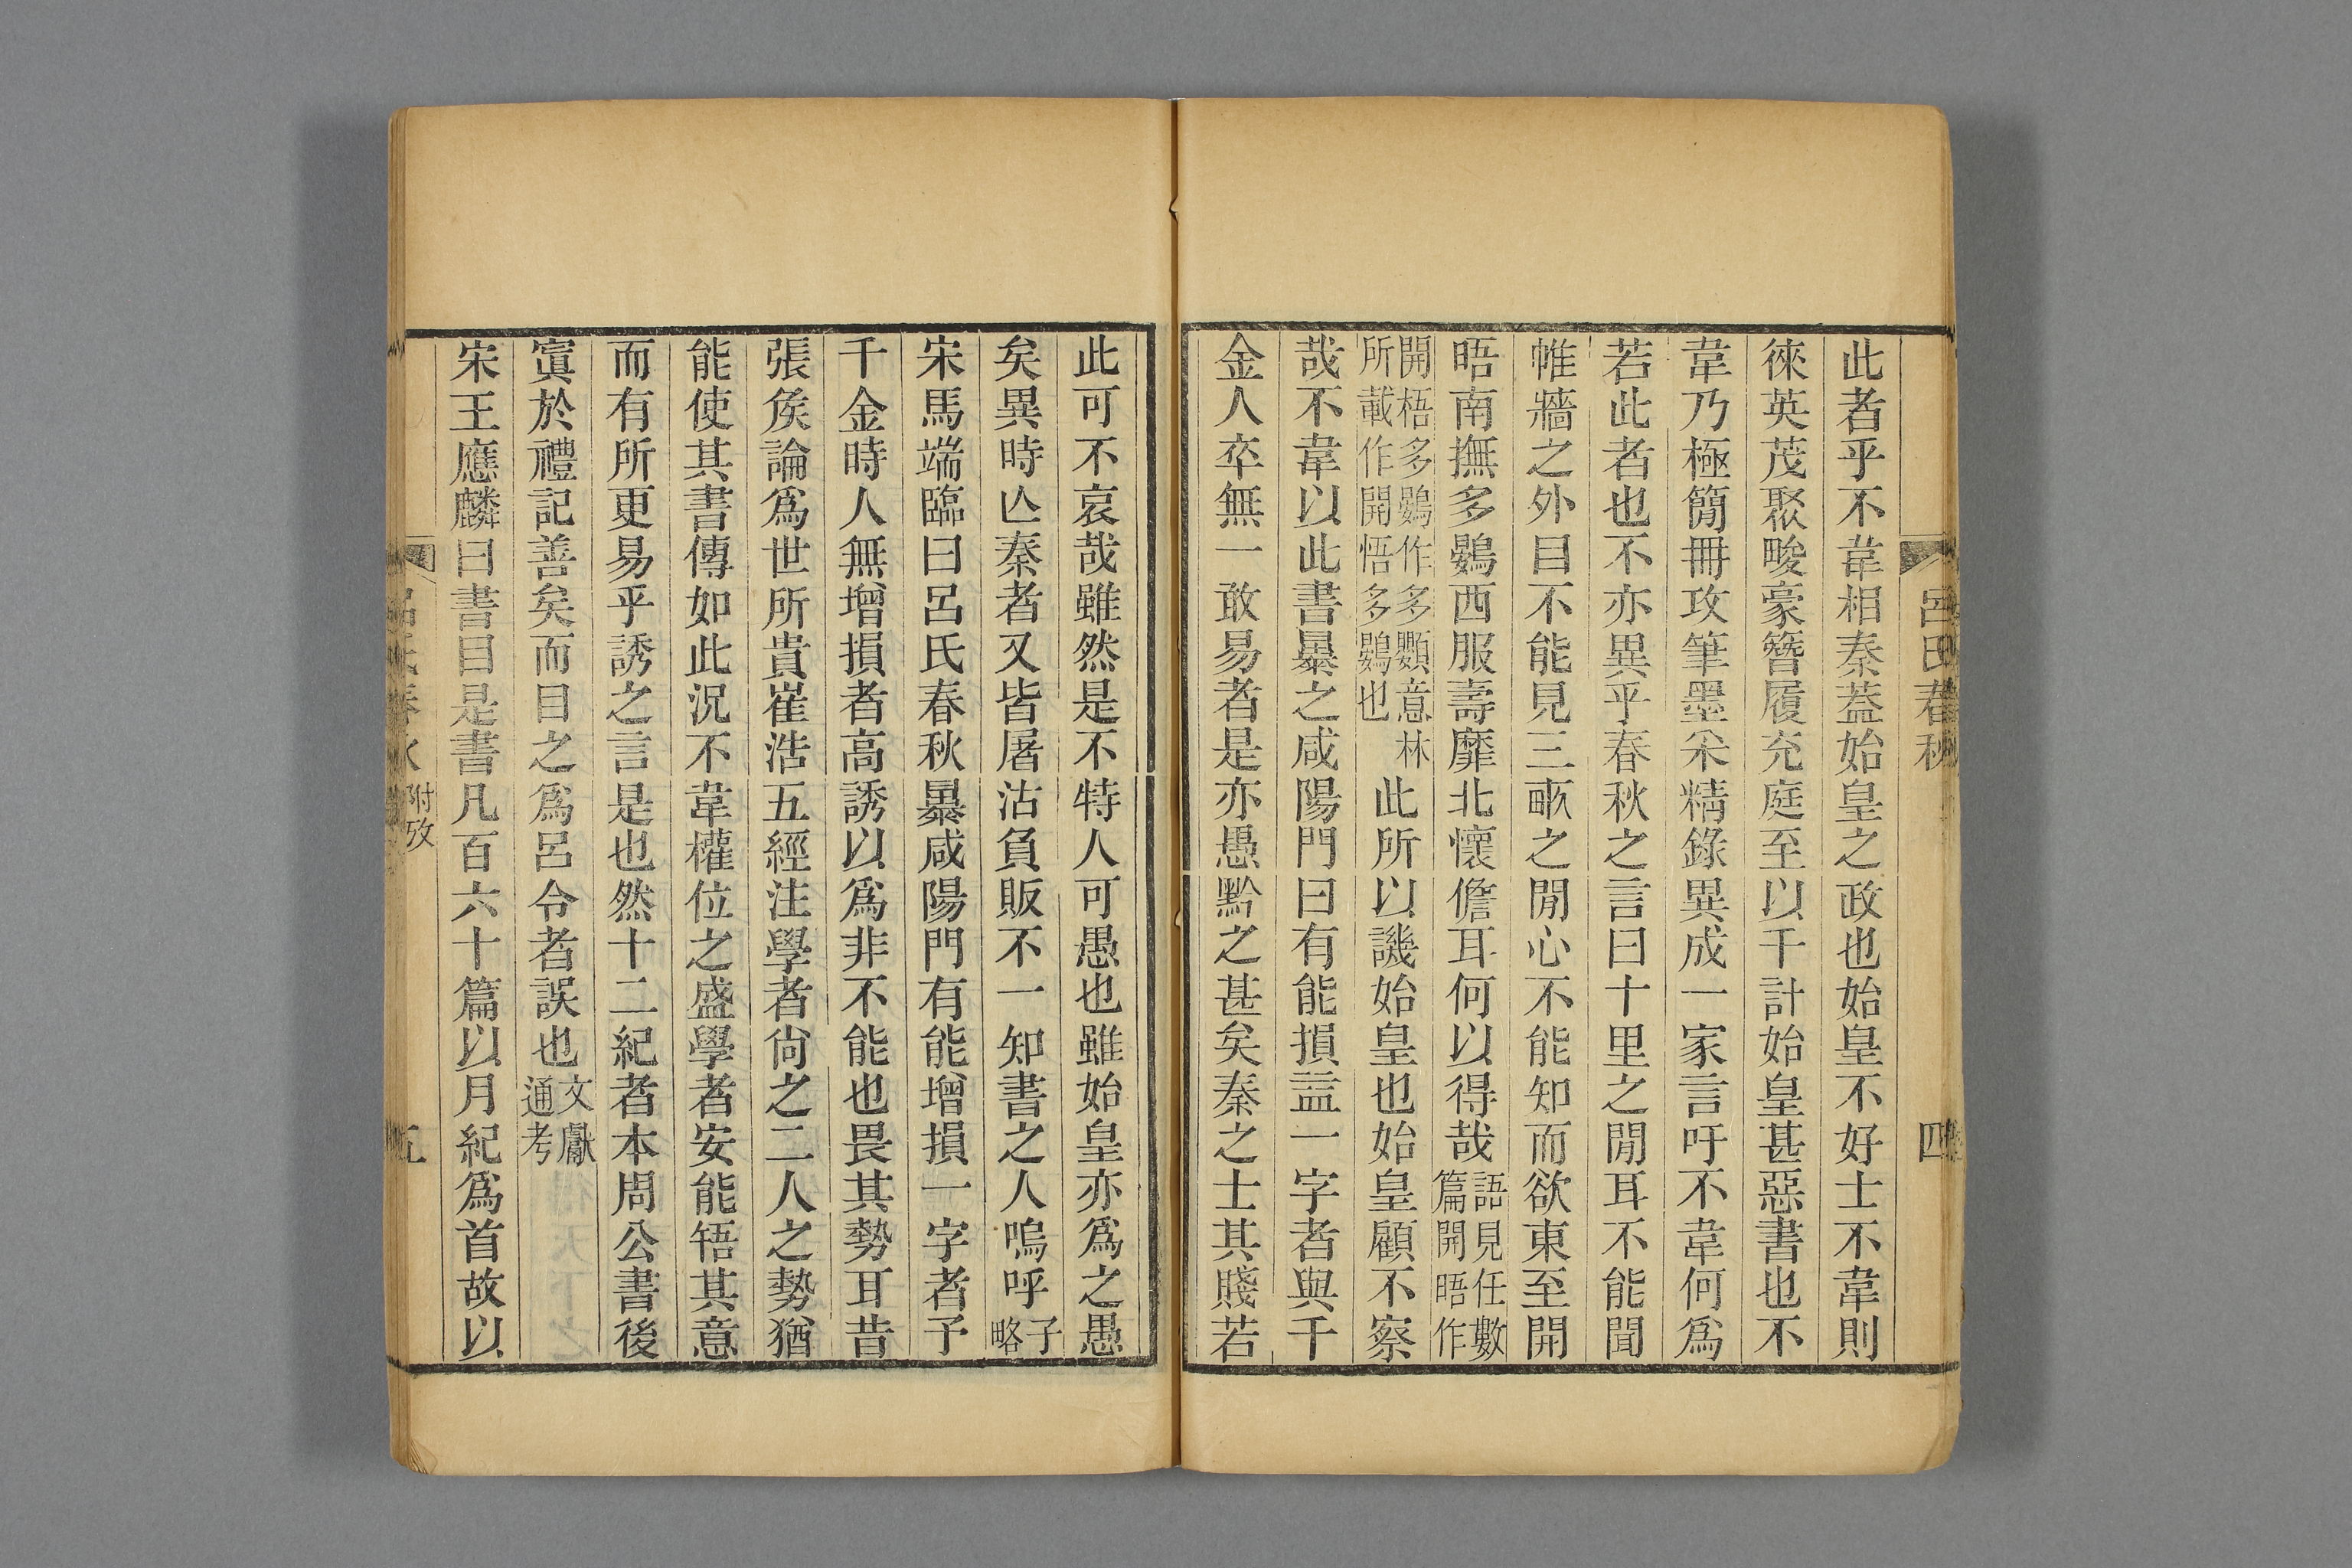 呂氏春秋 四
此者乎不韋相秦葢始皇之政也始皇不好士不韋則
徠英茂聚畯豪簪履充庭至以千計始皇甚惡書也不
韋乃極簡冊攻筆墨采精錄異成一家言吁不韋何爲
若此者也不亦異乎春秋之言曰十里之閒耳不能聞
帷牆之外目不能見三畝之閒心不能知而欲東至開
晤南撫多鷃西服壽靡北懷儋耳何以得哉語見任數篇開晤作
開梧多鷃作多顠意林所載作開悟多鷃也此所以譏始皇也始皇顧不察
哉不韋以此書暴之咸陽門曰有能損益一字者與千
金人卒無一敢易者是亦愚黔之甚矣秦之士其賤若
此可不哀哉雖然是不特人可愚也雖始皇亦爲之愚
矣異時亾秦者又皆屠沽負販不一知書之人嗚呼子略
宋馬端臨曰呂氏春秋暴咸陽門有能增損一字者予
千金時人無增損者高誘以爲非不能也畏其勢耳昔
張矦論爲世所貴崔浩五經注學者尙之二人之勢猶
能使其書傳如此況不韋權位之盛學者安能牾其意
而有所更易乎誘之言是也然十二紀者本周公書後
寘於禮記善矣而目之爲呂令者誤也文獻通考
宋王應麟曰書目是書凡百六十篇以月紀爲首故以
呂氏春秋 附攷 五